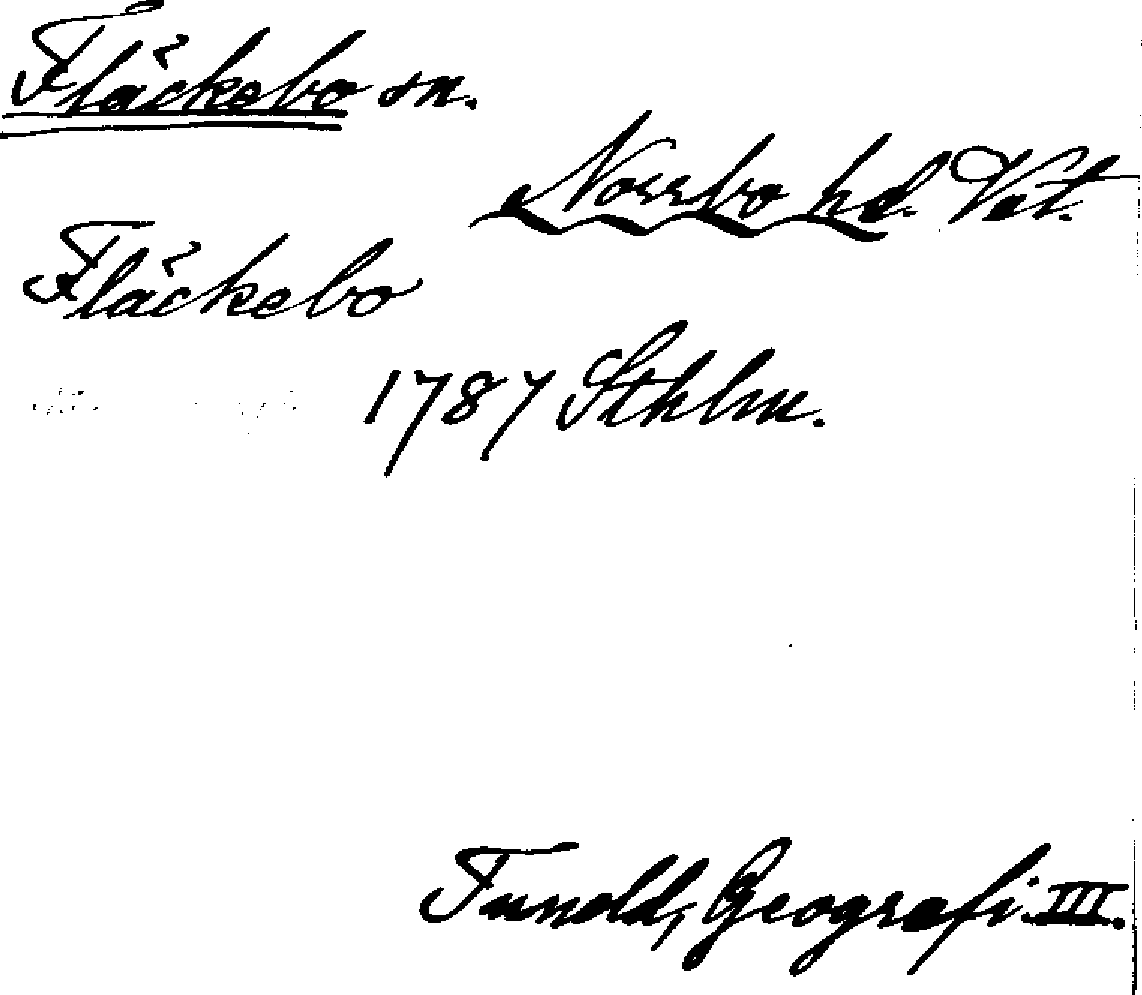 Fläckebo sn.
Norrbo hd. Vst.
Fläckebo
1787 Sthlm.
Tuneld, Geografi III.